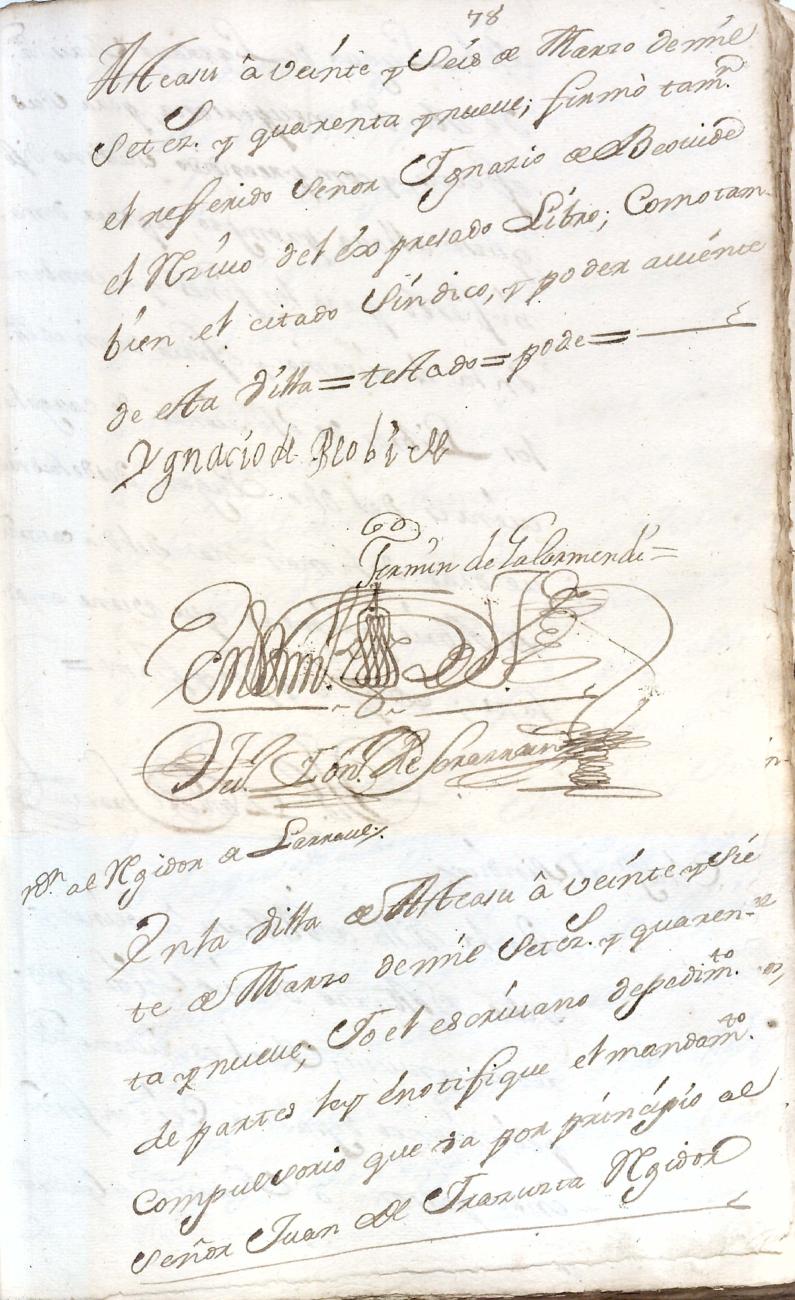 78
Atteasu â veinte y Seis de Marzo demîl
Setez.s y quarenta y nueve; firmò tam.n
el refferido Señor Ygnazio de Beovide
el Rzivo del êxpresado Libro; Como tam-
bien el citado Sîndico, y poder aviente
de esta Villa = testado = pode =
Ygnacio de Beobide
Fermîn de Galarmendi =
En
Ju.o
rôn al Rgidor de Larraul.
En la Villa de Atteasu â veinte y sie
te de Marzo de mîl Setez.s y quaren-
ta y nueve; Yo el escrivano de pedim.to
de parte ley ênotifique el mandam.to
Compulsorio que va por prinçipio al
Señor Juan de Yrazusta Rgidor